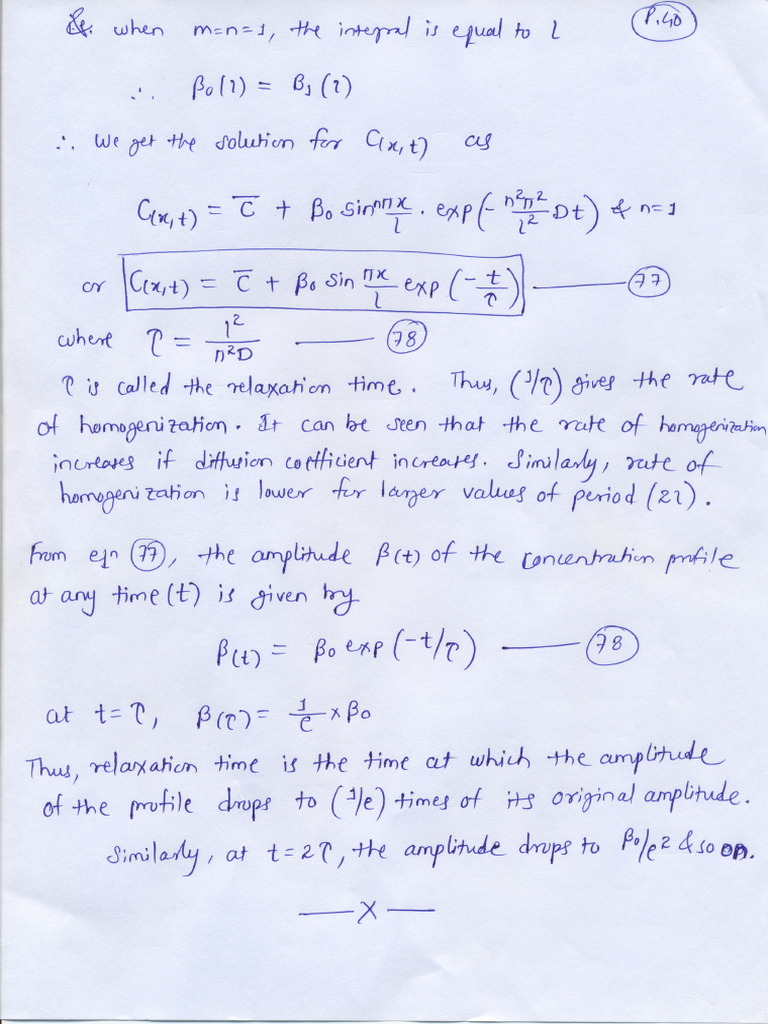 &. when m=n=1, the integral is equal to l
P.40
∴ β₀(l) = B₁(l)
∴ We get the solution for C(x,t) as
C(x,t) = C̅ + β₀ sin nπx/l . exp(-n²π²/l² Dt) & n=1
or C(x,t) = C̅ + β₀ sin πx/l exp(-t/τ) —— 77
where τ = l²/π²D —— 78
τ is called the relaxation time. Thus, (1/τ) gives the rate
of homogenization. It can be seen that the rate of homogenization
increases if diffusion coefficient increases. Similarly, rate of
homogenization is lower for larger values of period (2l).
From eqn 77, the amplitude β(t) of the concentration profile
at any time (t) is given by
β(t) = β₀ exp(-t/τ) —— 78
at t=τ, β(τ) = 1/e × β₀
Thus, relaxation time is the time at which the amplitude
of the profile drops to (1/e) times of its original amplitude.
Similarly, at t=2τ, the amplitude drops to β₀/e² & so on.
—— X ——